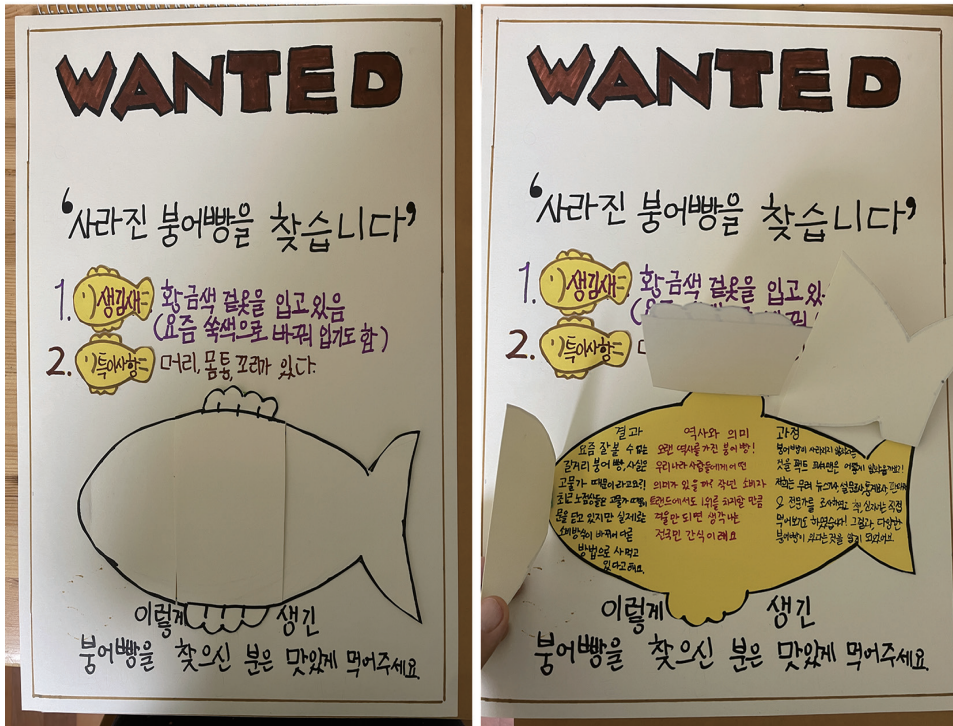 WANTED
'사라진 붕어빵을 찾습니다'
1. 생김새= 황금색 겉옷을 입고 있음
(요즘 쑥색으로 바꿔 입기도 함)
2. 특이사항= 머리, 몸통, 꼬리가 있다.
이렇게 생긴
붕어빵을 찾으신 분은 맛있게 먹어주세요
WANTED
'사라진 붕어빵을 찾습니다'
1. 생김새= 황금색 겉옷을 입고 있
2. 특이사항=
결과
요즘 잘 볼 수 없는
길거리 붕어빵, 사실은
고물가 때문이라고요?!
최근 노점상들은 고물가 때문에
문을 닫고 있지만 실제로는
소비방식이 바뀌어 다른
방법으로 사먹고
있다고해요.
역사와 의미
오랜 역사를 가진 붕어빵!
우리나라 사람들에게 어떤
의미가 있을까? 작년 소비자
트렌드에서도 1위를 차지할 만큼
겨울만 되면 생각나는
전국민 간식이래요
과정
붕어빵이 사라지지 않았다는
것을 팩트
저희는 우리 뉴스기사, 설문조사, 통계분석,
& 전문가를 조사하였고 직접
먹어보기도 하였습니다! 그결과, 다양한
붕어빵이 있다는 것을 알게 되었어요.
이렇게 생긴
붕어빵을 찾으신 분은 맛있게 먹어주세요